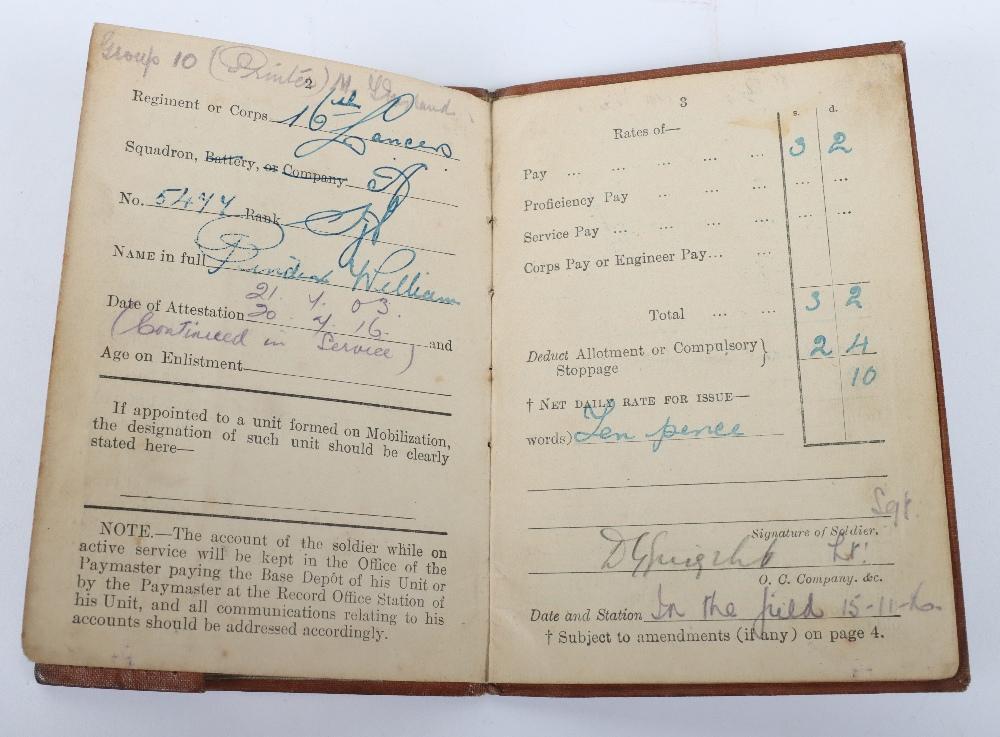 Group 10 (Printer)
2
Regiment or Corps 16th Lancers
Squadron, Battery, or Company A
No. 5477 Rank
NAME in full William
21. 7. 03.
Date of Attestation 20. 7. 16. and
(Continued in Service)
Age on Enlistment
If appointed to a unit formed on Mobilization,
the designation of such unit should be clearly
stated here—
NOTE.—The account of the soldier while on
active service will be kept in the Office of the
Paymaster paying the Base Depôt of his Unit or
by the Paymaster at the Record Office Station of
his Unit, and all communications relating to his
accounts should be addressed accordingly.
3
Rates of— s. d.
Pay ... ... ... ... ... 3 2
Proficiency Pay ... ... ... ... ...
Service Pay ... ... ... ... ...
Corps Pay or Engineer Pay... ...
Total ... ... 3 2
Deduct Allotment or Compulsory } 2 4
Stoppage
10
† NET DAILY RATE FOR ISSUE—
words) Ten pence
Sgt.
Signature of Soldier.
Lt.
O. C. Company. &c.
Date and Station In the field 15-11-16
† Subject to amendments (if any) on page 4.